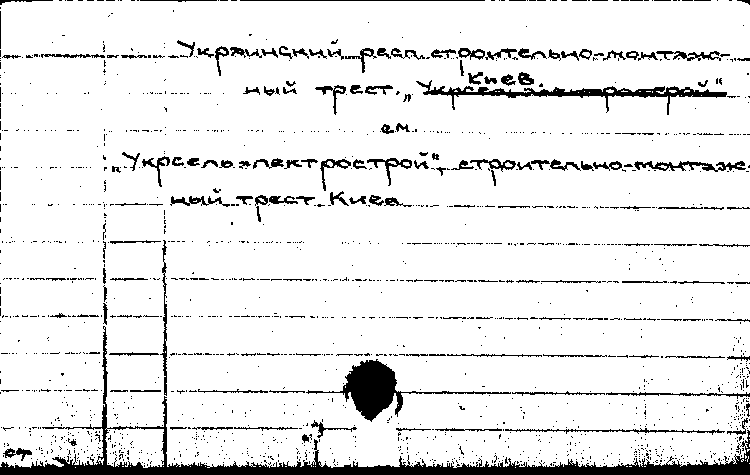 Украинский респ. строительно-монтаж-
ный трест. „Укрсельэлектрострой“ Киев.
см.
„Укрсельэлектрострой“, строительно-монтаж-
ный трест. Киев